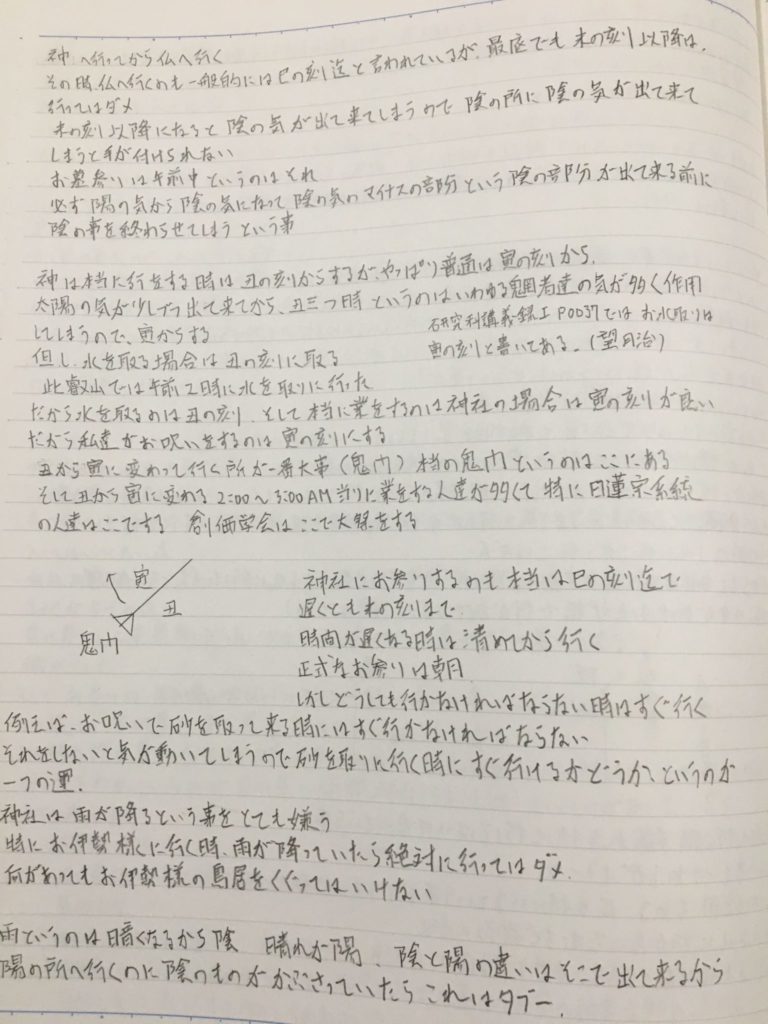 神へ行ってから仏へ行く
その時、仏へ行くのも一般的には巳の刻迄と言われているが、最底でも未の刻以降は、
行ってはダメ
未の刻以降になると陰の気が出て来てしまうので陰の所に陰の気が出て来て
しまうと手が付けられない
お墓参りは午前中というのはそれ
必ず陽の気から陰の気になって陰の気のマイナスの部分という陰の部分が出て来る前に
陰の事を終わらせてしまうという事
神は本当に行をする時は丑の刻からするが、やっぱり普通は寅の刻から、
太陽の気が少しずつ出て来てから、丑三つ時というのはいわゆる魍者達の気が多く作用
してしまうので、寅からする
研究科講義録I P0037ではお水取りは
寅の刻と書いてある。(望月治)
但し、水を取る場合は丑の刻に取る
比叡山では午前2時に水を取りに行った
だから水を取るのは丑の刻、そして本当に業をするのは神社の場合は寅の刻が良い
だから私達がお呪いをするのは寅の刻にする
丑から寅に変わって行く所が一番大事(鬼門)本当の鬼門というのはここにある
そして丑から寅に変わる2:00~3:00AM当りに業をする人達が多くて特に日蓮宗系統
の人達はここでする 創価学会はここで大祭をする
寅
丑
鬼門
神社にお参りするのも本当は巳の刻迄で
遅くとも未の刻まで
時間が遅くなる時は清めてから行く
正式なお参りは朝
しかしどうしても行かなければならない時はすぐ行く
例えば、お呪いで砂を取って来る時にはすぐ行かなければならない
それをしないと気が動いてしまうので砂を取りに行く時にすぐ行けるかどうか、というのが
一つの運.
神社は雨が降るという事をとても嫌う
特にお伊勢様に行く時、雨が降っていたら絶対に行ってはダメ.
何があってもお伊勢様の鳥居をくぐってはいけない
雨というのは暗くなるから陰 晴れが陽、陰と陽の違いはそこで出て来るから
陽の所へ行くのに陰のものがかぶさっていたらこれはタブー.